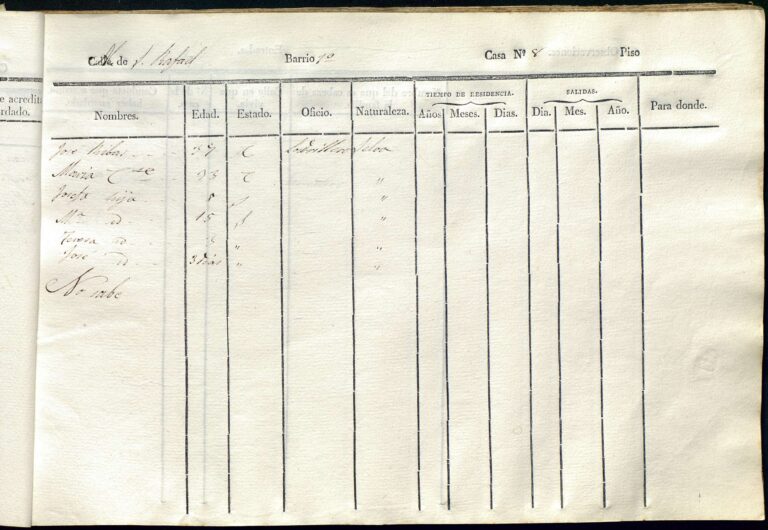 e acredita
rdado.
Calle de S. Rafael Barrio 12 Casa Nº 8 Piso
Nombres. Edad. Estado. Oficio. Naturaleza. TIEMPO DE RESIDENCIA. Años Meses. Dias. SALIDAS. Dia. Mes. Año. Para donde.
Jose Ribas 37 C
Maria 33 C "
Josefa hija "
Mª id 15 "
Teresa id " "
Jose id 3 dias " "
No sabe